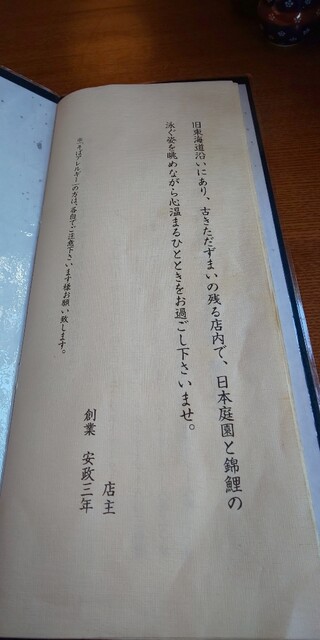 旧東海道沿いにあり、古きたたずまいの残る店内で、日本庭園と錦鯉の
泳ぐ姿を眺めながら心温まるひとときをお過ごし下さいませ。
店主
創業 安政三年
※「そばアレルギー」の方は、各自でご注意下さいます様お願い致します。